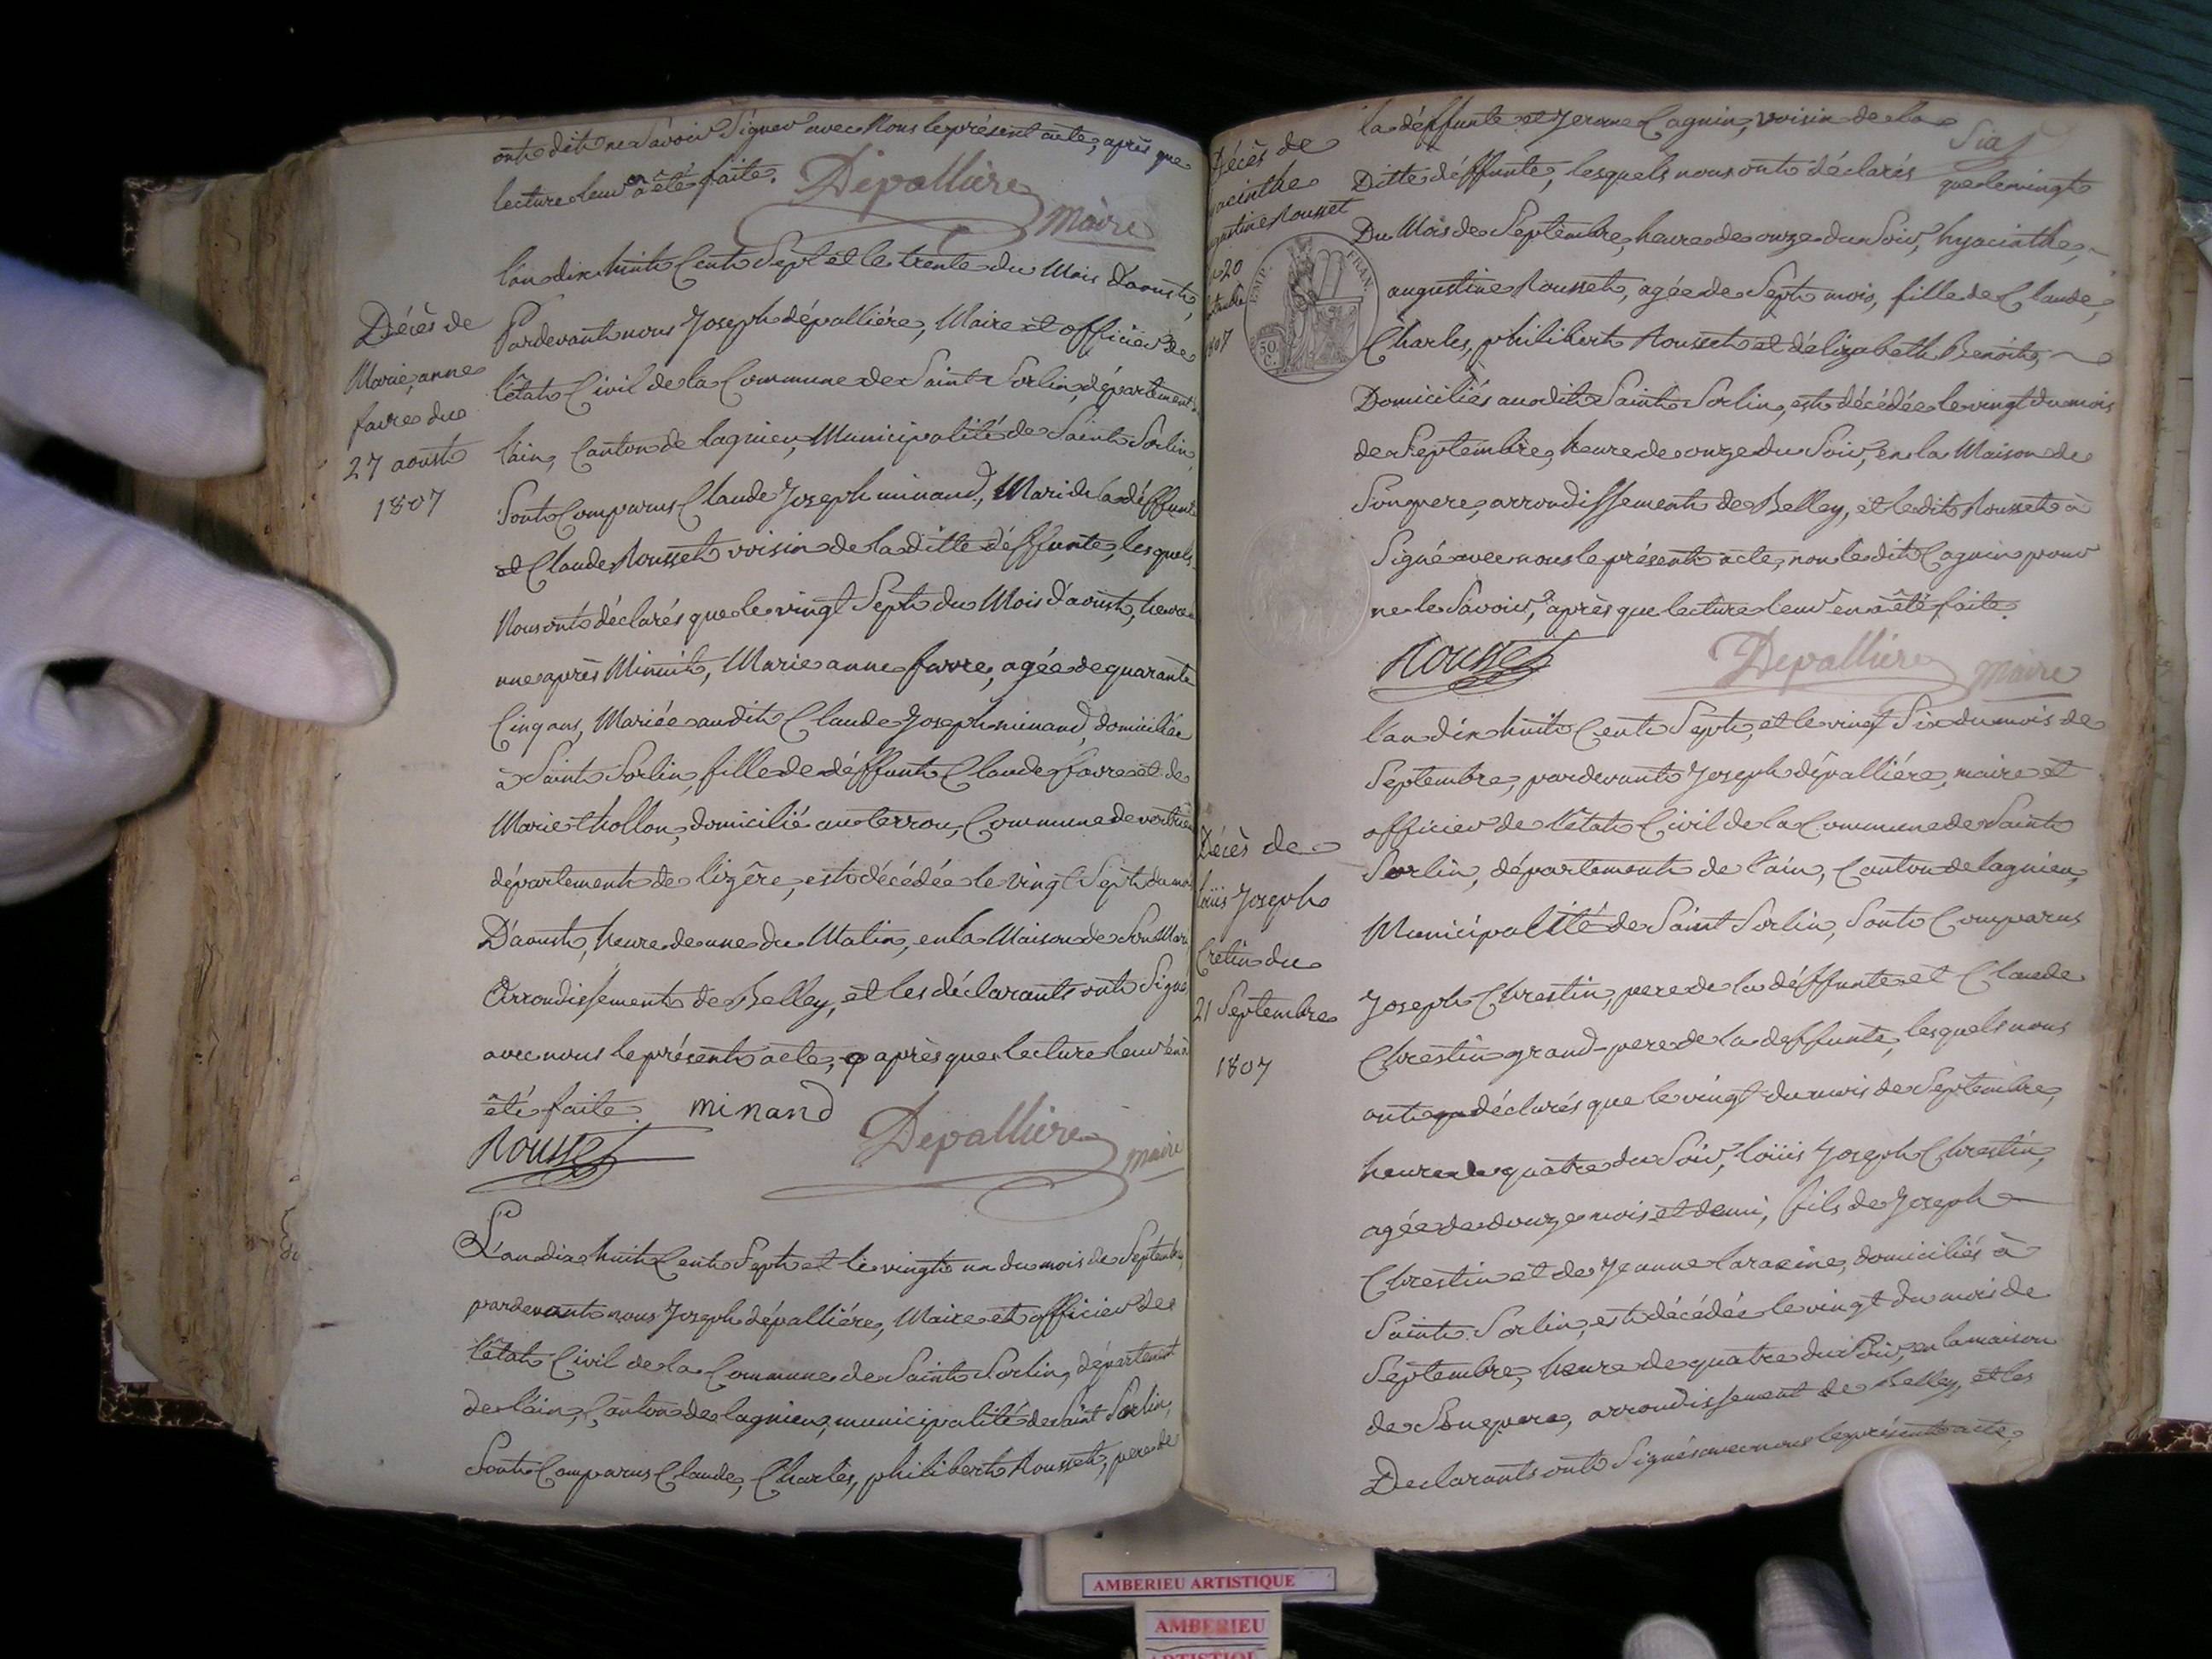 ont dit ne Sávoir Signer avec Nous le présent acte, après que
lecture leur en a été faite.
Dépallière
Maire
l'an dix huit Cent Sept et le trente du Mois D'aoust,
Décès de
Marie, anne
favre du
27 aoust
1807
Pardevant nous Joseph dépalliére, Maire et officier de
l'état Civil de la Commune de Saint Sorlin, département de
l'ain, Canton de lagnieu, Municipalité de Saint Sorlin,
Sont Comparus Claude Joseph minand, Mari de la déffunte
et Claude Rousset voisin de la ditte déffunte, lesquels
Nous ont déclarés que le vingt Sept du Mois d'aoust, heure
une après Minuit, Marie anne favre, agée de quarante
Cinq ans, Mariée audit Claude Joseph minand, domiciliée
à Saint Sorlin, fille de déffunt Claude favre et de
Marie thollon, domicilié au terrou, Commune de vertrieu
département de lizêre, est décédée le vingt Sept du mois
D'aoust, heure de une du Matin, en la Maison de Son Mari
Arrondissement de Belley, et les déclarants ont Signé
avec nous le présent acte, après que lecture leur en à
été faite. minand
Rousset
Depallière
maire
L'an dix huit Cent Sept et le vingt un du mois de Septembre,
pardevant nous Joseph dépalliére, Maire et officier de
l'état Civil de la Commune de Saint Sorlin, département
de l'ain, Canton de lagnieu, municipalité de Saint Sorlin,
Sont Comparus Claude, Charles, philibert Rousset, pere de
Six
la déffunte et Jerome Cagnin, voisin de la
Décès de
hyacinthe
augustine Rousset
du 20
Septembre
1807
EMP. FRAN.
50
C.
Ditte déffunte, lesquels nous ont déclarés que le vingt
Du Mois de Septembre, heure de onze du Soir, hyacinthe,
augustine Rousset, agée de Sept mois, fille de Claude,
Charles, philibert Rousset et d'élizabeth Benoit,
Domiciliés audit Saint Sorlin, est décédée le vingt du mois
de Septembre, heure de onze du Soir, en la Maison de
Son pere, arrondissement de Belley, et ledit Rousset à
Signé avec nous le présent acte, non ledit Cagnin pour
ne le Savoir, après que lecture leur en à été faite.
Rousset
Depallière
maire
l'an dix huit Cent Sept, et le vingt Six du mois de
Septembre, pardevant Joseph dépalliére, maire et
officier de l'état Civil de la Commune de Saint
Sorlin, département de l'ain, Canton de lagnieu,
Décès de
loüis Joseph
Cretin du
21 Septembre
1807
Municipalité de Saint Sorlin, Sont Comparus
Joseph Chrestin, pere de la déffunte et Claude
Chrestin grand-pere de la deffunte, lesquels nous
ont déclarés que le vingt du mois de Septembre,
heure de quatre du Soir, loüis Joseph Chrestin,
agée de douze mois et demi, fils de Joseph
Chrestin et de Jeanne laracine, domiciliés à
Saint Sorlin, est décédée le vingt du mois de
Séptembre, heure de quatre du Soir, en la maison
de Son pere, arrondissement de Belley, et les
Declarants ont Signés avec nous le présent acte,
AMBERIEU ARTISTIQUE
AMBERIEU
ARTISTIQUE